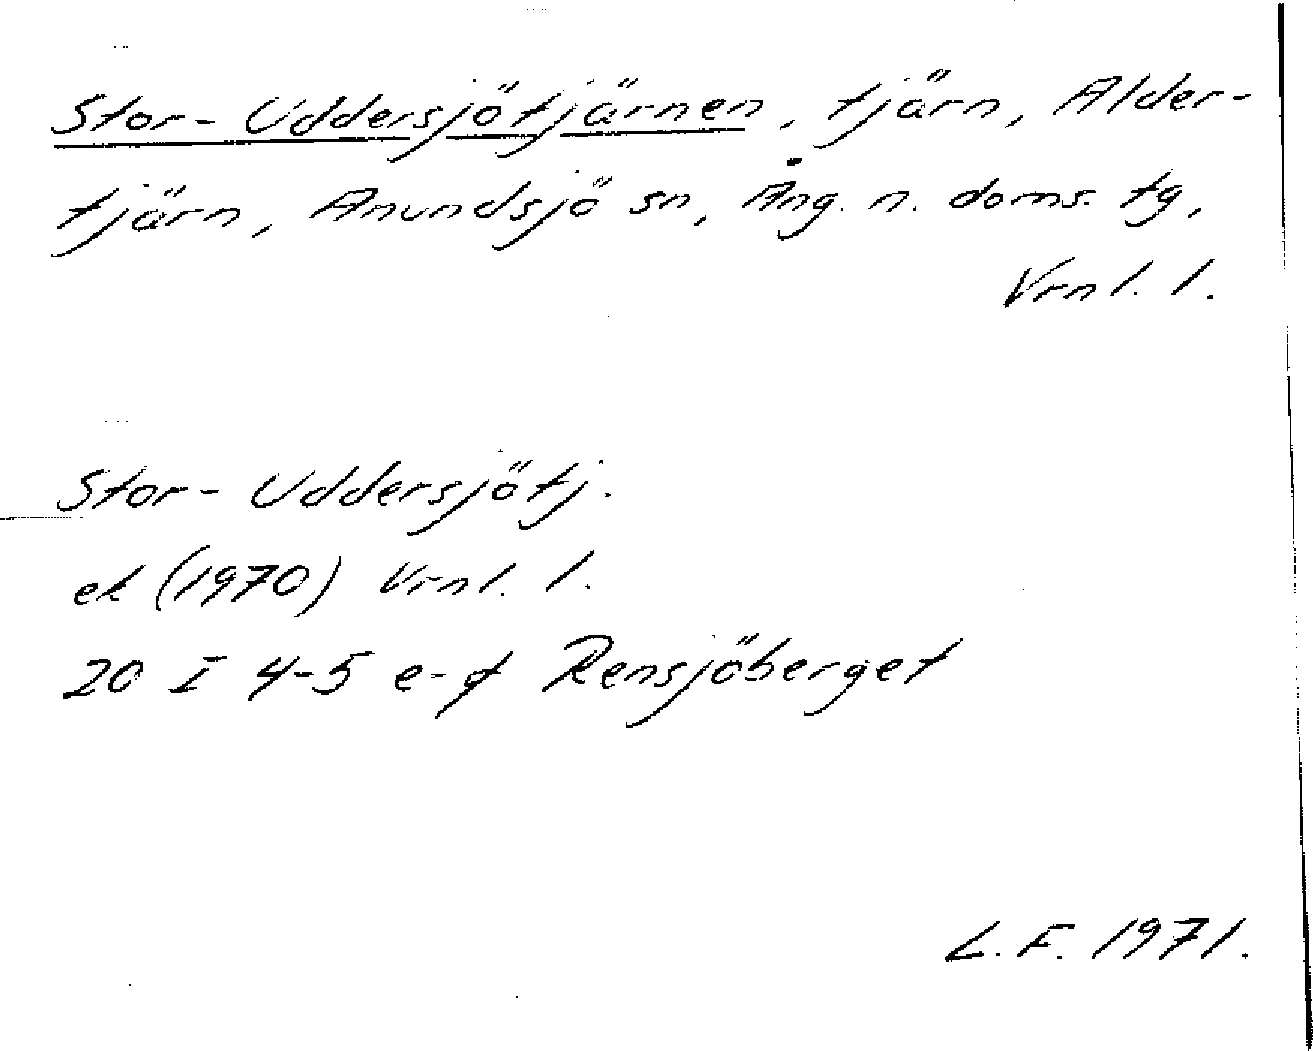 Stor-Uddersjötjärnen, tjärn, Alder-
tjärn, Anundsjö sn, Ång. n. doms. tg,
Vrnl. l.
Stor-Uddersjötj.
ek (1970) Vrnl. l.
20 I 4-5 e-f Rensjöberget
L.F. 1971.